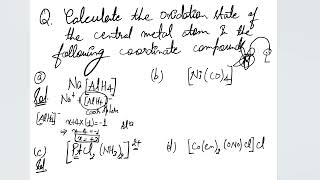 Q. Calculate the oxidation state of
the central metal atom in the
following coordinate compounds
(a) Na[AlH4]
(b) [Ni(CO)4]
Sol
Na+ [AlH4]-
[AlH4]-
x+4×(-1)=-1
⇒ x-4=-1
x=+3
(c) [Pt Cl2 (NH3)2]2+
d) [Co(en)2(ONO)Cl]Cl